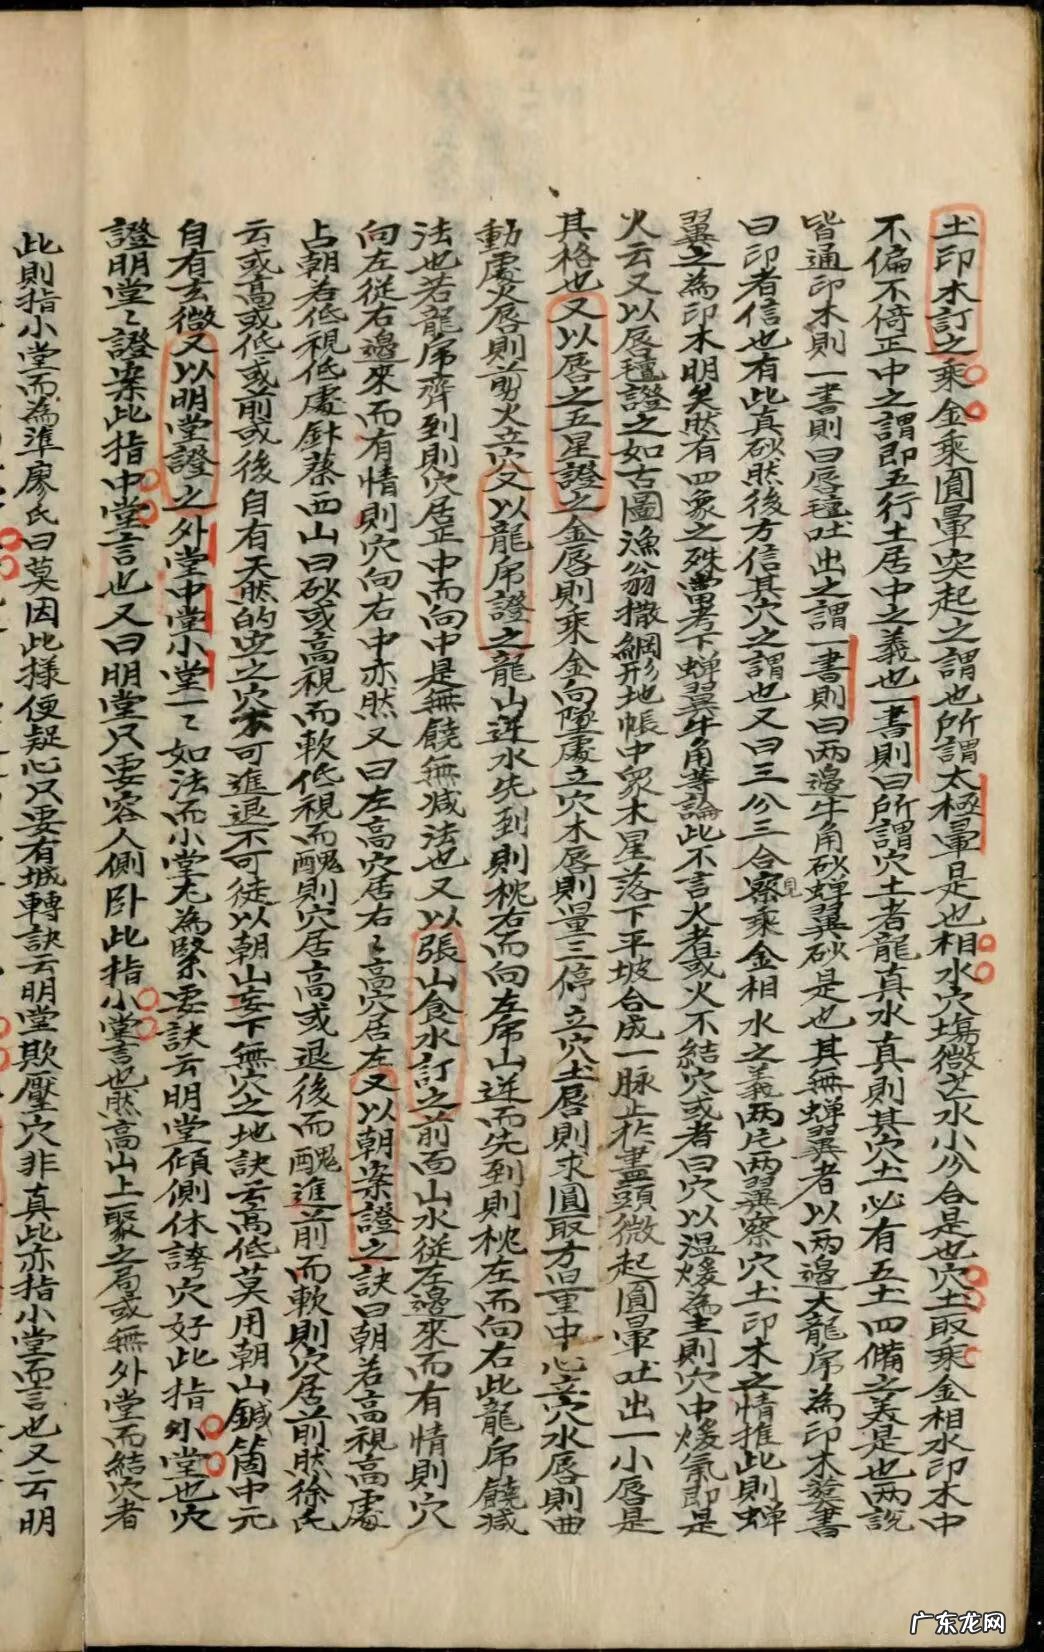 土印木訂之乘金乘圓暈突起之謂也所謂太極暈是也相水穴塲微芒水小分合是也穴土取乘金相水印木中
不偏不倚正中之謂即五行土居中之義也一書則曰所謂穴土者龍真水真則其穴土必有五土四備之美是也两說
皆通印木則一書則曰唇氊吐出之謂一書則曰两邊牛角砂蟬翼砂是也其無蟬翼者以两邊大龍虎為印木葬書
曰印者信也有此真砂然後方信其穴之謂也又曰三分三合察見乘金相水之義两片两翼察穴土印木之情推此則蟬
翼之為印木明矣然有四象之殊當考下蟬翼牛角等論此不言火者或火不結穴或者曰穴以温煖為主則穴中煖氣即是
火云又以唇氊證之如古圖漁翁撒網形地帳中衆木星落下平坡合成一脉止於盡頭微起圓暈吐出一小唇是
其格也又以唇之五星證之金唇則乘金向墜處立穴木唇則量三停立穴土唇則求圓取方毋重中心立穴水唇則曲
動處火唇則剪火立穴又以龍虎證之龍山逆水先到則枕右而向左虎山逆而先到則枕左而向右此龍虎饒减
法也若龍虎齊到則穴居正中而向中是無饒無减法也又以張山食水訂之前面山水從左邊來而有情則穴
向左從右邊來而有情則穴向右中亦然又曰左高穴居右〻高穴居左又以朝案證之訣曰朝若高視高處
占朝若低視低處針蔡西山曰砂或高視而軟低視而醜則穴居高或退後而醜進前而軟則穴居前然徐氏
云或高或低或前或後自有天然的定之穴不可進退不可徒以朝山妄下無穴之地訣云高低莫用朝山鍼箇中元
自有玄微又以明堂證之外堂中堂小堂一〻如法而小堂尤為緊要訣云明堂傾側休誇穴好此指外堂也穴
證明堂〻證案此指中堂言也又曰明堂只要容人側卧此指小堂言也然高山上聚之局或無外堂而結穴者
此則指小堂而為準廖氏曰莫因此樣便疑心只要有城轉訣云明堂欺壓穴非真此亦指小堂而言也又云明
广东龙网